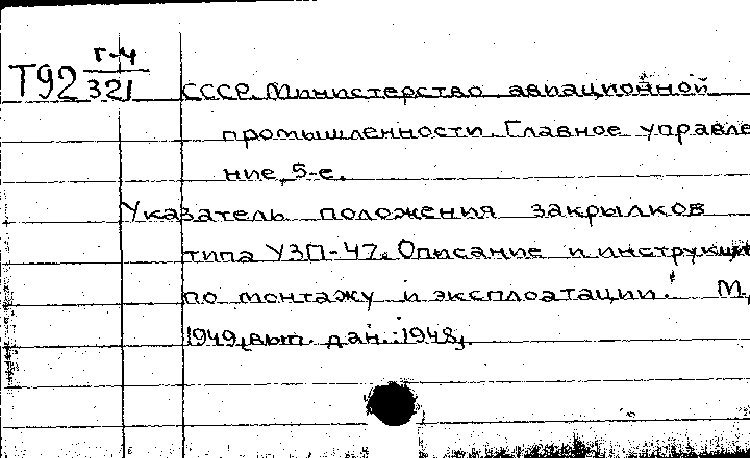 Г-4
Т92 321 СССР. Министерство авиационной
промышленности. Главное управле
ние, 5-е.
Указатель положения закрылков
типа УЗП-47. Описание и инструкци
по монтажу и эксплоатации. М.,
1949, вып. дан. 1948,.